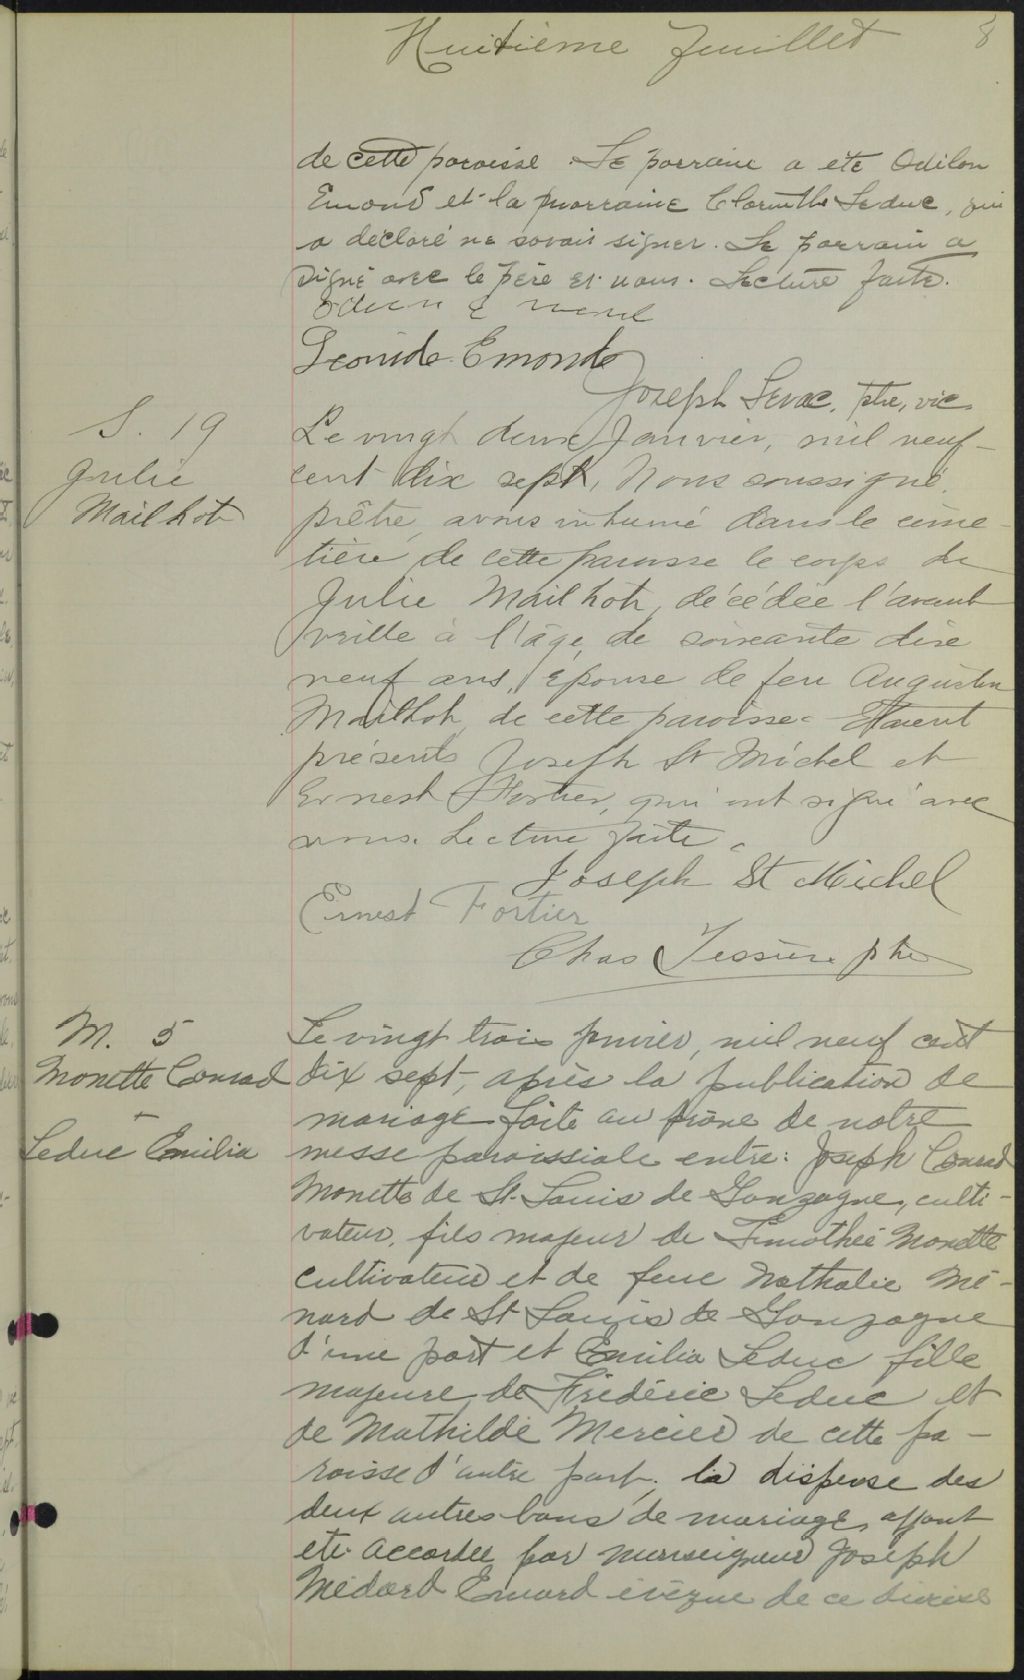 Huitième feuillet 8
de cette paroisse. Le parrain a été Odilon
Emond et la marraine Clorinthe Leduc, qui
a déclaré ne savoir signer. Le parrain a
signé avec le père et nous. Lecture faite.
Odilon Emond
Leonide Emonde
Joseph Levac, ptre, vic.
S. 19
Julie
Mailhot
Le vingt deux Janvier, mil neuf-
cent dix sept, Nous soussigné,
prêtre, avons inhumé dans le cime-
tière de cette paroisse le corps de
Julie Mailhot, décédée l'avant
veille à l'âge de soixante dix
neuf ans, épouse de feu Augustin
Mailhot, de cette paroisse. Etaient
présents Joseph St Michel et
Ernest Fortier, qui ont signé avec
nous. Lecture faite.
Joseph St Michel
Ernest Fortier
Chas Tessier ptre
M. 5
Monette Conrad
+
Leduc Emilia
Le vingt trois janvier, mil neuf cent
dix sept, après la publication de
mariage faite au prône de notre
messe paroissiale entre: Joseph Conrad
Monette de St-Louis de Gonzague, culti-
vateur, fils majeur de Timothée Monette
cultivateur et de feue Nathalie Mé-
nard de St Louis de Gonzague
d'une part et Emilia Leduc fille
majeure de Frédéric Leduc et
de Mathilde Mercier de cette pa-
roisse d'autre part; la dispense des
deux autres bans de mariage, ayant
été accordée par monseigneur Joseph
Médard Emard évêque de ce diocèse